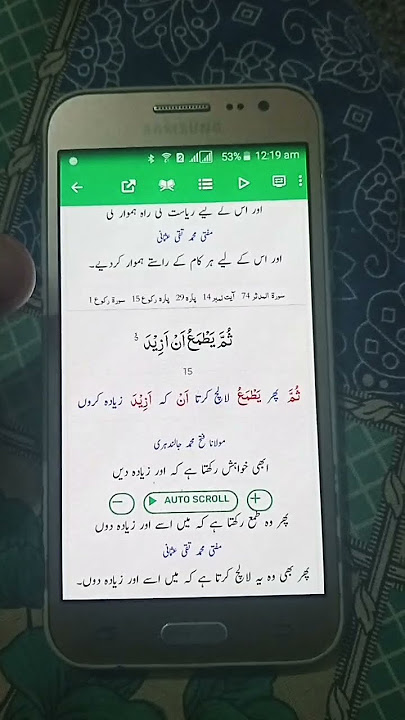 SAMSUNG
2 53% 12:19 am
اور اس کے لیے ریاست کی راہ ہموار کی
مفتی محمد تقی عثمانی
اور اس کے لیے ہر کام کے راستے ہموار کردیے۔
سورۃ المدثر 74 آیت نمبر 14 پارہ 29 پارہ رکوع 15 سورۃ رکوع 1
ثُمَّ يَطْمَعُ اَنْ اَزِيْدَ
15
ثُمَّ پھر يَطْمَعُ لالچ کرتا اَنْ کہ اَزِيْدَ زیادہ کروں
مولانا فتح محمد جالندہری
ابھی خواہش رکھتا ہے کہ اور زیادہ دیں
− AUTO SCROLL +
پھر وہ طمع رکھتا ہے کہ میں اسے اور زیادہ دوں
مفتی محمد تقی عثمانی
پھر بھی وہ یہ لالچ کرتا ہے کہ میں اسے اور زیادہ دوں۔